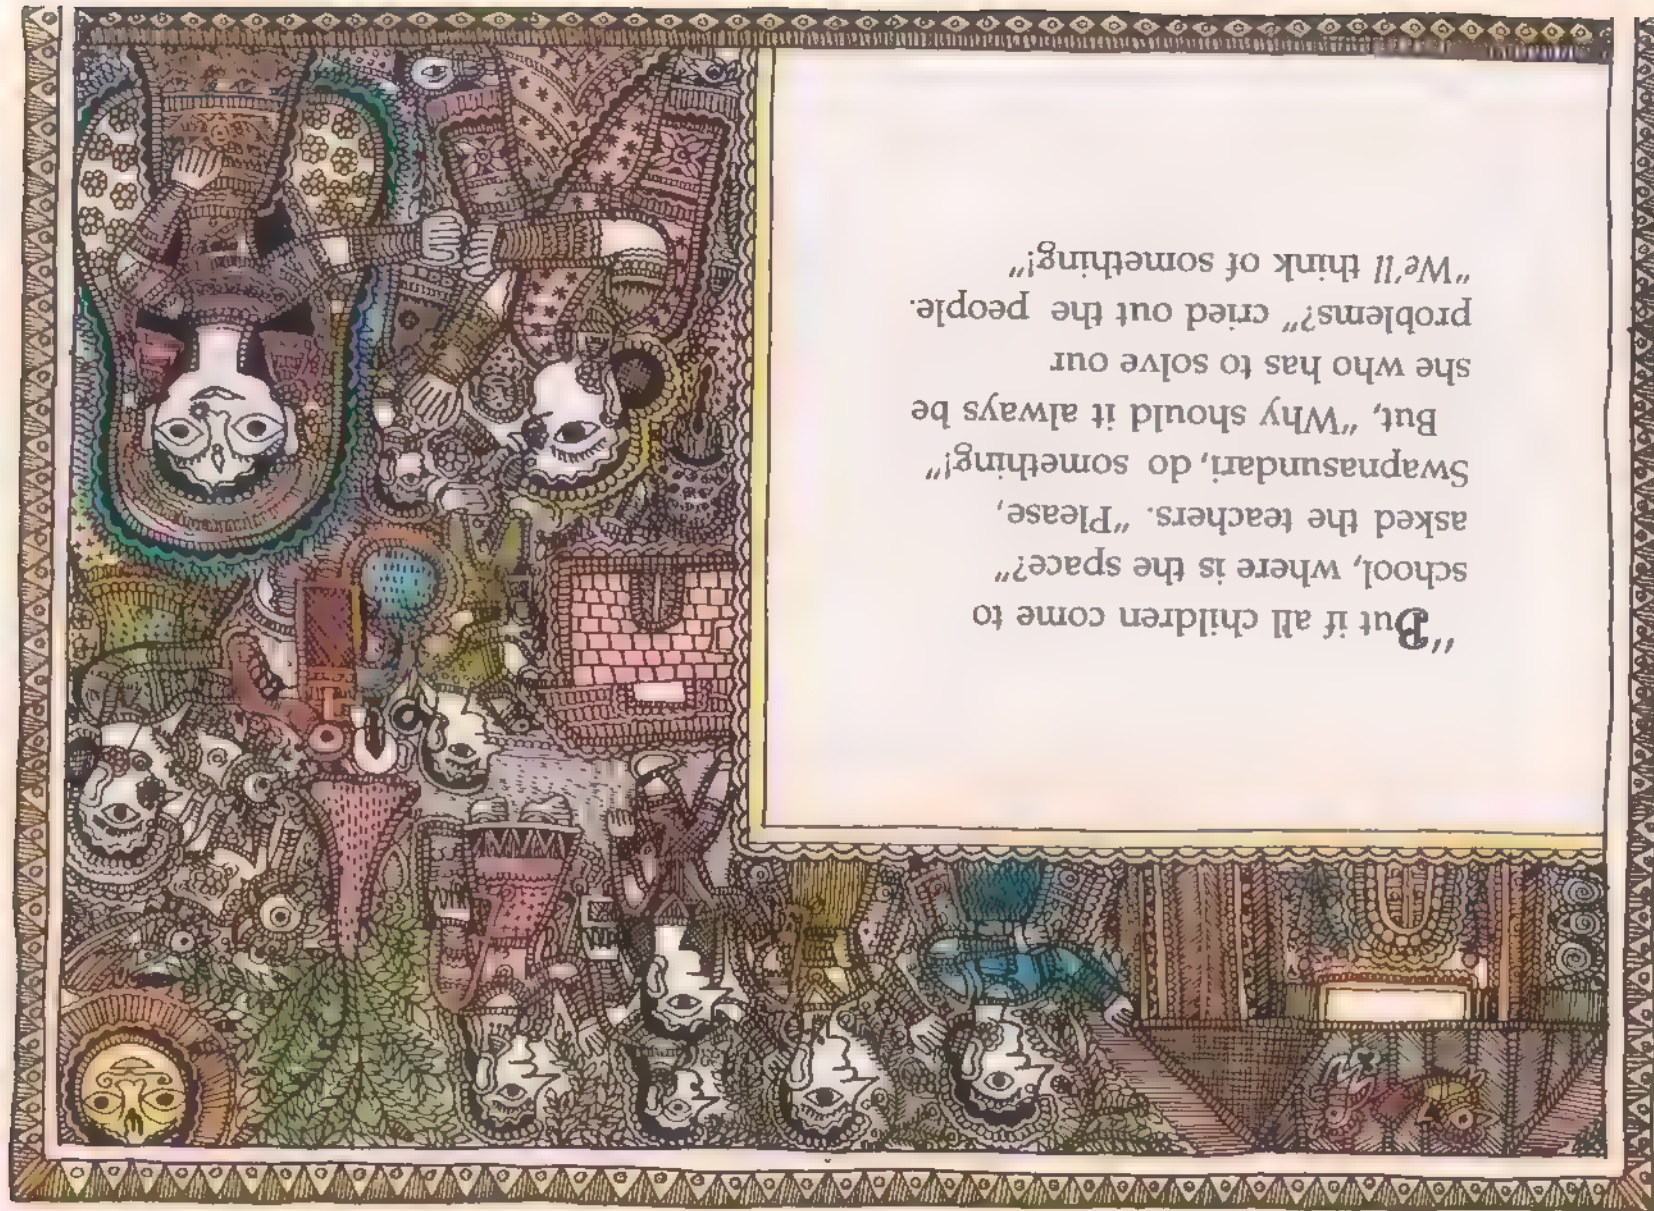 "But if all children come to
school, where is the space?"
asked the teachers. "Please,
Swapnasundari, do something!"
But, "Why should it always be
she who has to solve our
problems?" cried out the people.
"We'll think of something!"